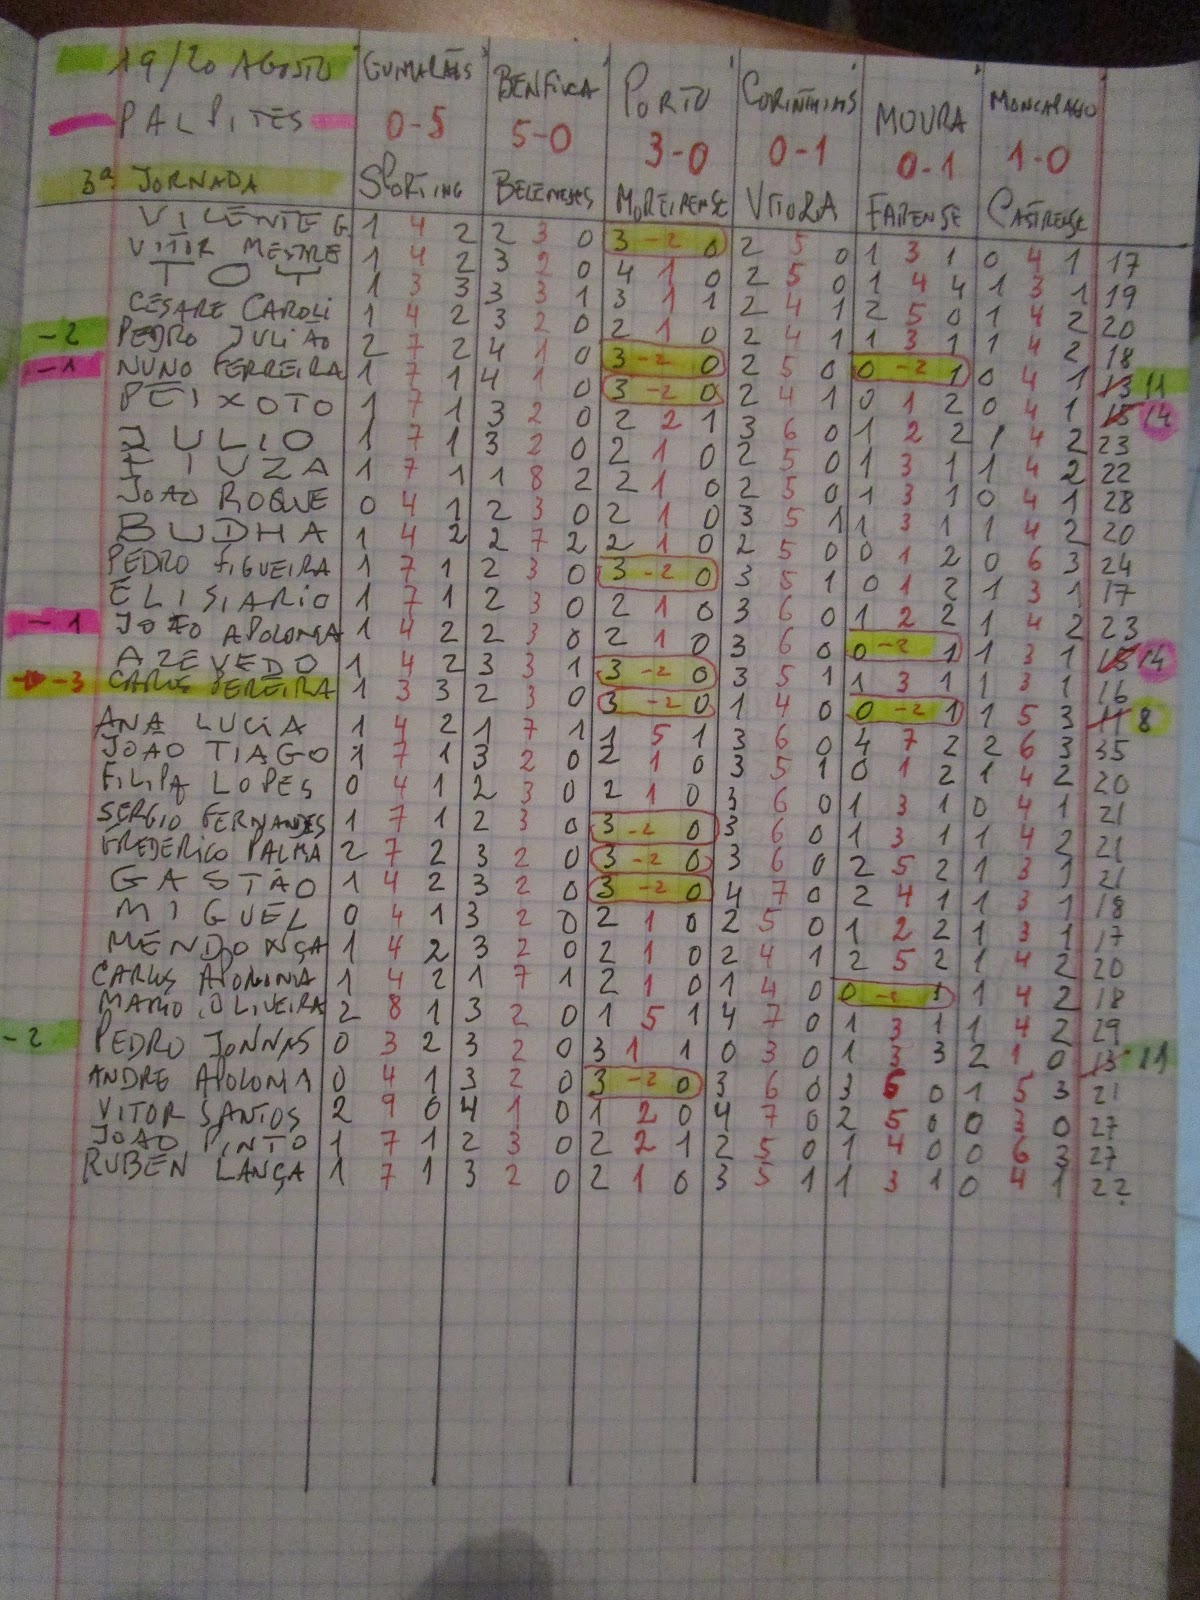 19/20 AGOSTO GUIMARÃES BENFICA PORTO CORINTHIANS MOURA MONCARAPACHO
PALPITES 0-5 5-0 3-0 0-1 0-1 1-0
3ª JORNADA SPORTING BELENENSES MOREIRENSE VITORIA FARENSE CASTRENSE
VICENTE G 1 4 2 2 3 0 3 -2 0 2 5 0 1 3 1 0 4 1 17
VITOR MESTRE 1 4 2 3 2 0 4 1 0 2 5 0 1 4 4 1 3 1 19
TOY 1 3 3 3 3 1 3 1 1 2 4 1 2 5 0 1 4 2 20
CESARE CAROLI 1 4 2 3 2 0 2 1 0 2 4 1 1 3 1 1 4 2 18
-2 PEDRO JULIÃO 2 7 2 4 1 0 3 -2 0 2 5 0 0 -2 1 0 4 1 13 11
-1 NUNO FERREIRA 1 7 1 4 1 0 3 -2 0 2 4 1 0 1 2 0 4 1 15 14
PEIXOTO 1 7 1 3 2 0 2 2 1 3 6 0 1 2 2 1 4 2 23
JULIO 1 7 1 3 2 0 2 1 0 2 5 0 1 3 1 1 4 2 22
FIUZA 1 7 1 1 8 2 2 1 0 2 5 0 1 3 1 0 4 1 28
JOAO ROQUE 0 4 1 2 3 0 2 1 0 3 5 1 1 3 1 1 4 2 20
BUDHA 1 4 2 2 7 2 2 1 0 2 5 0 0 1 2 0 6 3 24
PEDRO FIGUEIRA 1 7 1 2 3 0 3 -2 0 3 5 1 0 1 2 1 3 1 17
ELISIARIO 1 7 1 2 3 0 2 1 0 3 6 0 1 2 2 1 4 2 23
-1 JOÃO APOLONIA 1 4 2 2 3 0 2 1 0 3 6 0 0 -2 1 1 3 1 15 14
AZEVEDO 1 4 2 3 3 1 3 -2 0 3 5 1 1 3 1 1 3 1 16
-3 CARLOS PEREIRA 1 3 3 2 3 0 3 -2 0 1 4 0 0 -2 1 1 5 3 11 8
ANA LUCIA 1 4 2 1 7 1 1 5 1 3 6 0 4 7 2 2 6 3 35
JOAO TIAGO 1 7 1 3 2 0 2 1 0 3 5 1 0 1 2 1 4 2 20
FILIPA LOPES 0 4 1 2 3 0 2 1 0 3 6 0 1 3 1 0 4 1 21
SERGIO FERNANDES 1 7 1 2 3 0 3 -2 0 3 6 0 1 3 1 1 4 2 21
FREDERICO PALMA 2 7 2 3 2 0 3 -2 0 3 6 0 2 5 2 1 3 1 21
GASTÃO 1 4 2 3 2 0 3 -2 0 4 7 0 2 4 1 1 3 1 18
MIGUEL 0 4 1 3 2 0 2 1 0 2 5 0 1 2 2 1 3 1 17
MENDONÇA 1 4 2 3 2 0 2 1 0 2 4 1 2 5 2 1 4 2 20
CARLOS APOLONIA 1 4 2 1 7 1 2 1 0 1 4 0 0 -2 1 1 4 2 18
MARIO OLIVEIRA 2 8 1 3 2 0 1 5 1 4 7 0 1 3 1 1 4 2 29
-2 PEDRO JONNAS 0 3 2 3 2 0 3 1 1 0 3 0 1 3 3 2 1 0 13 11
ANDRE APOLONIA 0 4 1 3 2 0 3 -2 0 3 6 0 3 6 0 1 5 3 21
VITOR SANTOS 2 9 0 4 1 0 1 2 0 4 7 0 2 5 0 0 3 0 27
JOAO PINTO 1 7 1 2 3 0 2 2 1 2 5 0 1 4 0 0 6 3 27
RUBEN LANÇA 1 7 1 3 2 0 2 1 0 3 5 1 1 3 1 0 4 1 22